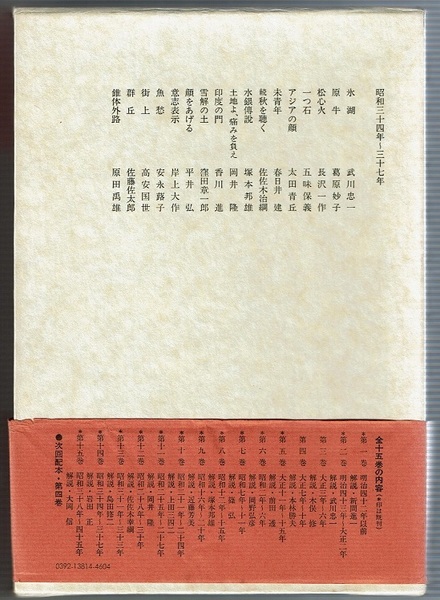 昭和三十四年~三十七年
氷湖 武川忠一
原牛 葛原妙子
松心火 長沢一作
一つ石 五味保義
アジアの顔 太田青丘
未青年 春日井建
晩秋を聴く 佐佐木治綱
水銀傳說 塚本邦雄
土地よ、痛みを負え 岡井隆
印度の門 香川進
雪解の土 窪田章一郎
顔をあげる 平井弘
意志表示 岸上大作
魚愁 安永蕗子
街上 高安国世
群丘 佐藤佐太郎
錐体外路 原田禹雄
全十五巻の内容(*印は既刊)
*第一巻 明治四十二年以前
解説・新間進一
*第二巻 明治四十二年~大正二年
解説・武川忠一
*第三巻 大正三年~六年
解説・木俣修
第四巻 大正七年~十年
解説・本林勝夫
*第五巻
解説・前田透
*第六巻 昭和二年~六年
解説・岡野弘彦
*第七巻 昭和七年~十一年
解説・篠弘
*第八巻 昭和十二年~十五年
解説・塚本邦雄
*第九巻 昭和十六年~二十年
解説・近藤芳美
*第十巻
解説・上田三四二
*第十一巻
解説・岡井隆
*第十二巻
解説・佐佐木幸綱
*第十三巻 昭和三十一年~三十三年
解説・島田修二
*第十四巻 昭和三十四年~三十七年
解説・岩田正
*第十五巻 昭和三十八年~四十五年
解説・大岡信
●次回配本・第四巻
0392-13814-4604